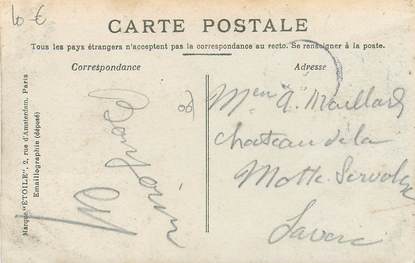 10 €
CARTE POSTALE
Tous les pays étrangers n'acceptent pas la correspondance au recto. Se renseigner à la poste.
Correspondance
Adresse
Marque "ÉTOILE", 2, rue d'Amsterdam, Paris
Emaillographie (déposé)
Maillard
chateau de la
Motte Servolex
Savoie